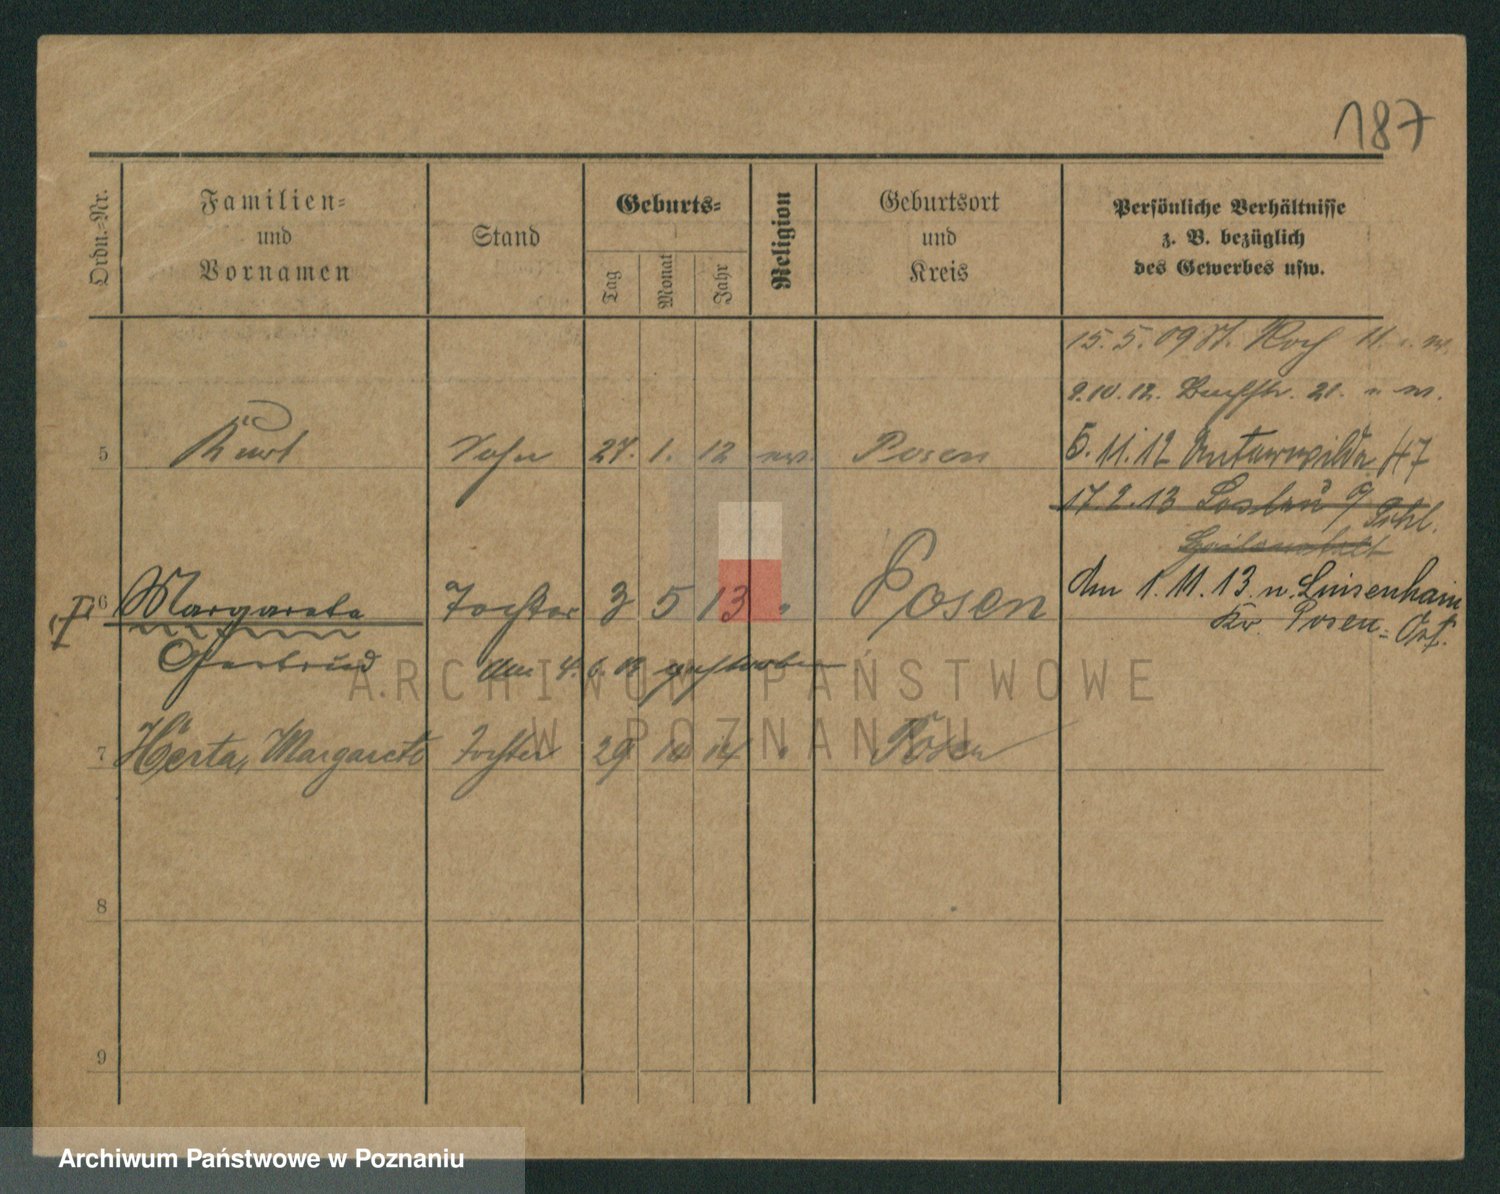 187
Ordn.-Nr.
Familien-
und
Vornamen
Stand
Geburts-
Tag
Monat
Jahr
Religion
Geburtsort
und
Kreis
Persönliche Verhältnisse
z. B. bezüglich
des Gewerbes usw.
15.5.09 St. Roch 11
9.10.12. 21.
5 Kurt Sohn 27. 1. 12 Posen
5.11.12 Unterwilda 47
17.2.13
6 Margareta Tochter 3 5 13 " Posen
Am 1.11.13 n. Luisenhain
Kr. Posen-Ost.
Gertrud
Am 4. 6. 13 gestorben
7 Herta, Margarete Tochter 29 14 " Posen
8
9
ARCHIWUM PAŃSTWOWE
W POZNANIU
Archiwum Państwowe w Poznaniu